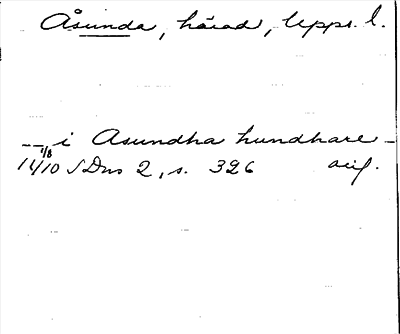 Åsunda, härad, Upps. l.
__ i Asundha hundhare _
1/8
14/10 SDns 2, s. 326 avif.